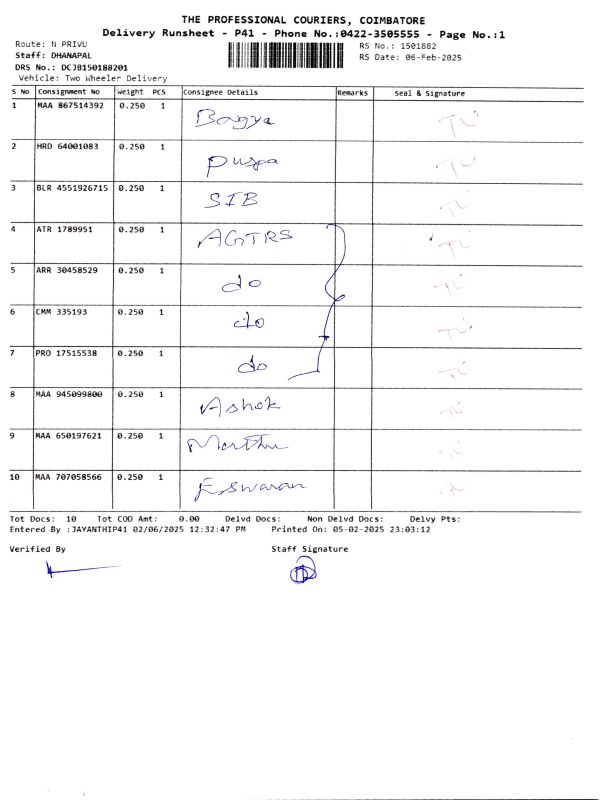 THE PROFESSIONAL COURIERS, COIMBATORE
Delivery Runsheet - P41 - Phone No.:0422-3505555 - Page No.:1
Route: N PRIVU RS No.: 1501882
Staff: DHANAPAL RS Date: 06-Feb-2025
DRS No.: DCJB150188201
Vehicle: Two Wheeler Delivery
S No Consignment No Weight PCS Consignee Details Remarks Seal & Signature
1 MAA 867514392 0.250 1 Bagya
2 HRD 64001083 0.250 1 puspa
3 BLR 4551926715 0.250 1 SIB
4 ATR 1789951 0.250 1 AGTRS
5 ARR 30458529 0.250 1 do
6 CMM 335193 0.250 1 do
7 PRO 17515538 0.250 1 do
8 MAA 945099800 0.250 1 Ashok
9 MAA 650197621 0.250 1
10 MAA 707058566 0.250 1 Eswaran
Tot Docs: 10 Tot COD Amt: 0.00 Delvd Docs: Non Delvd Docs: Delvy Pts:
Entered By :JAYANTHIP41 02/06/2025 12:32:47 PM Printed On: 05-02-2025 23:03:12
Verified By Staff Signature